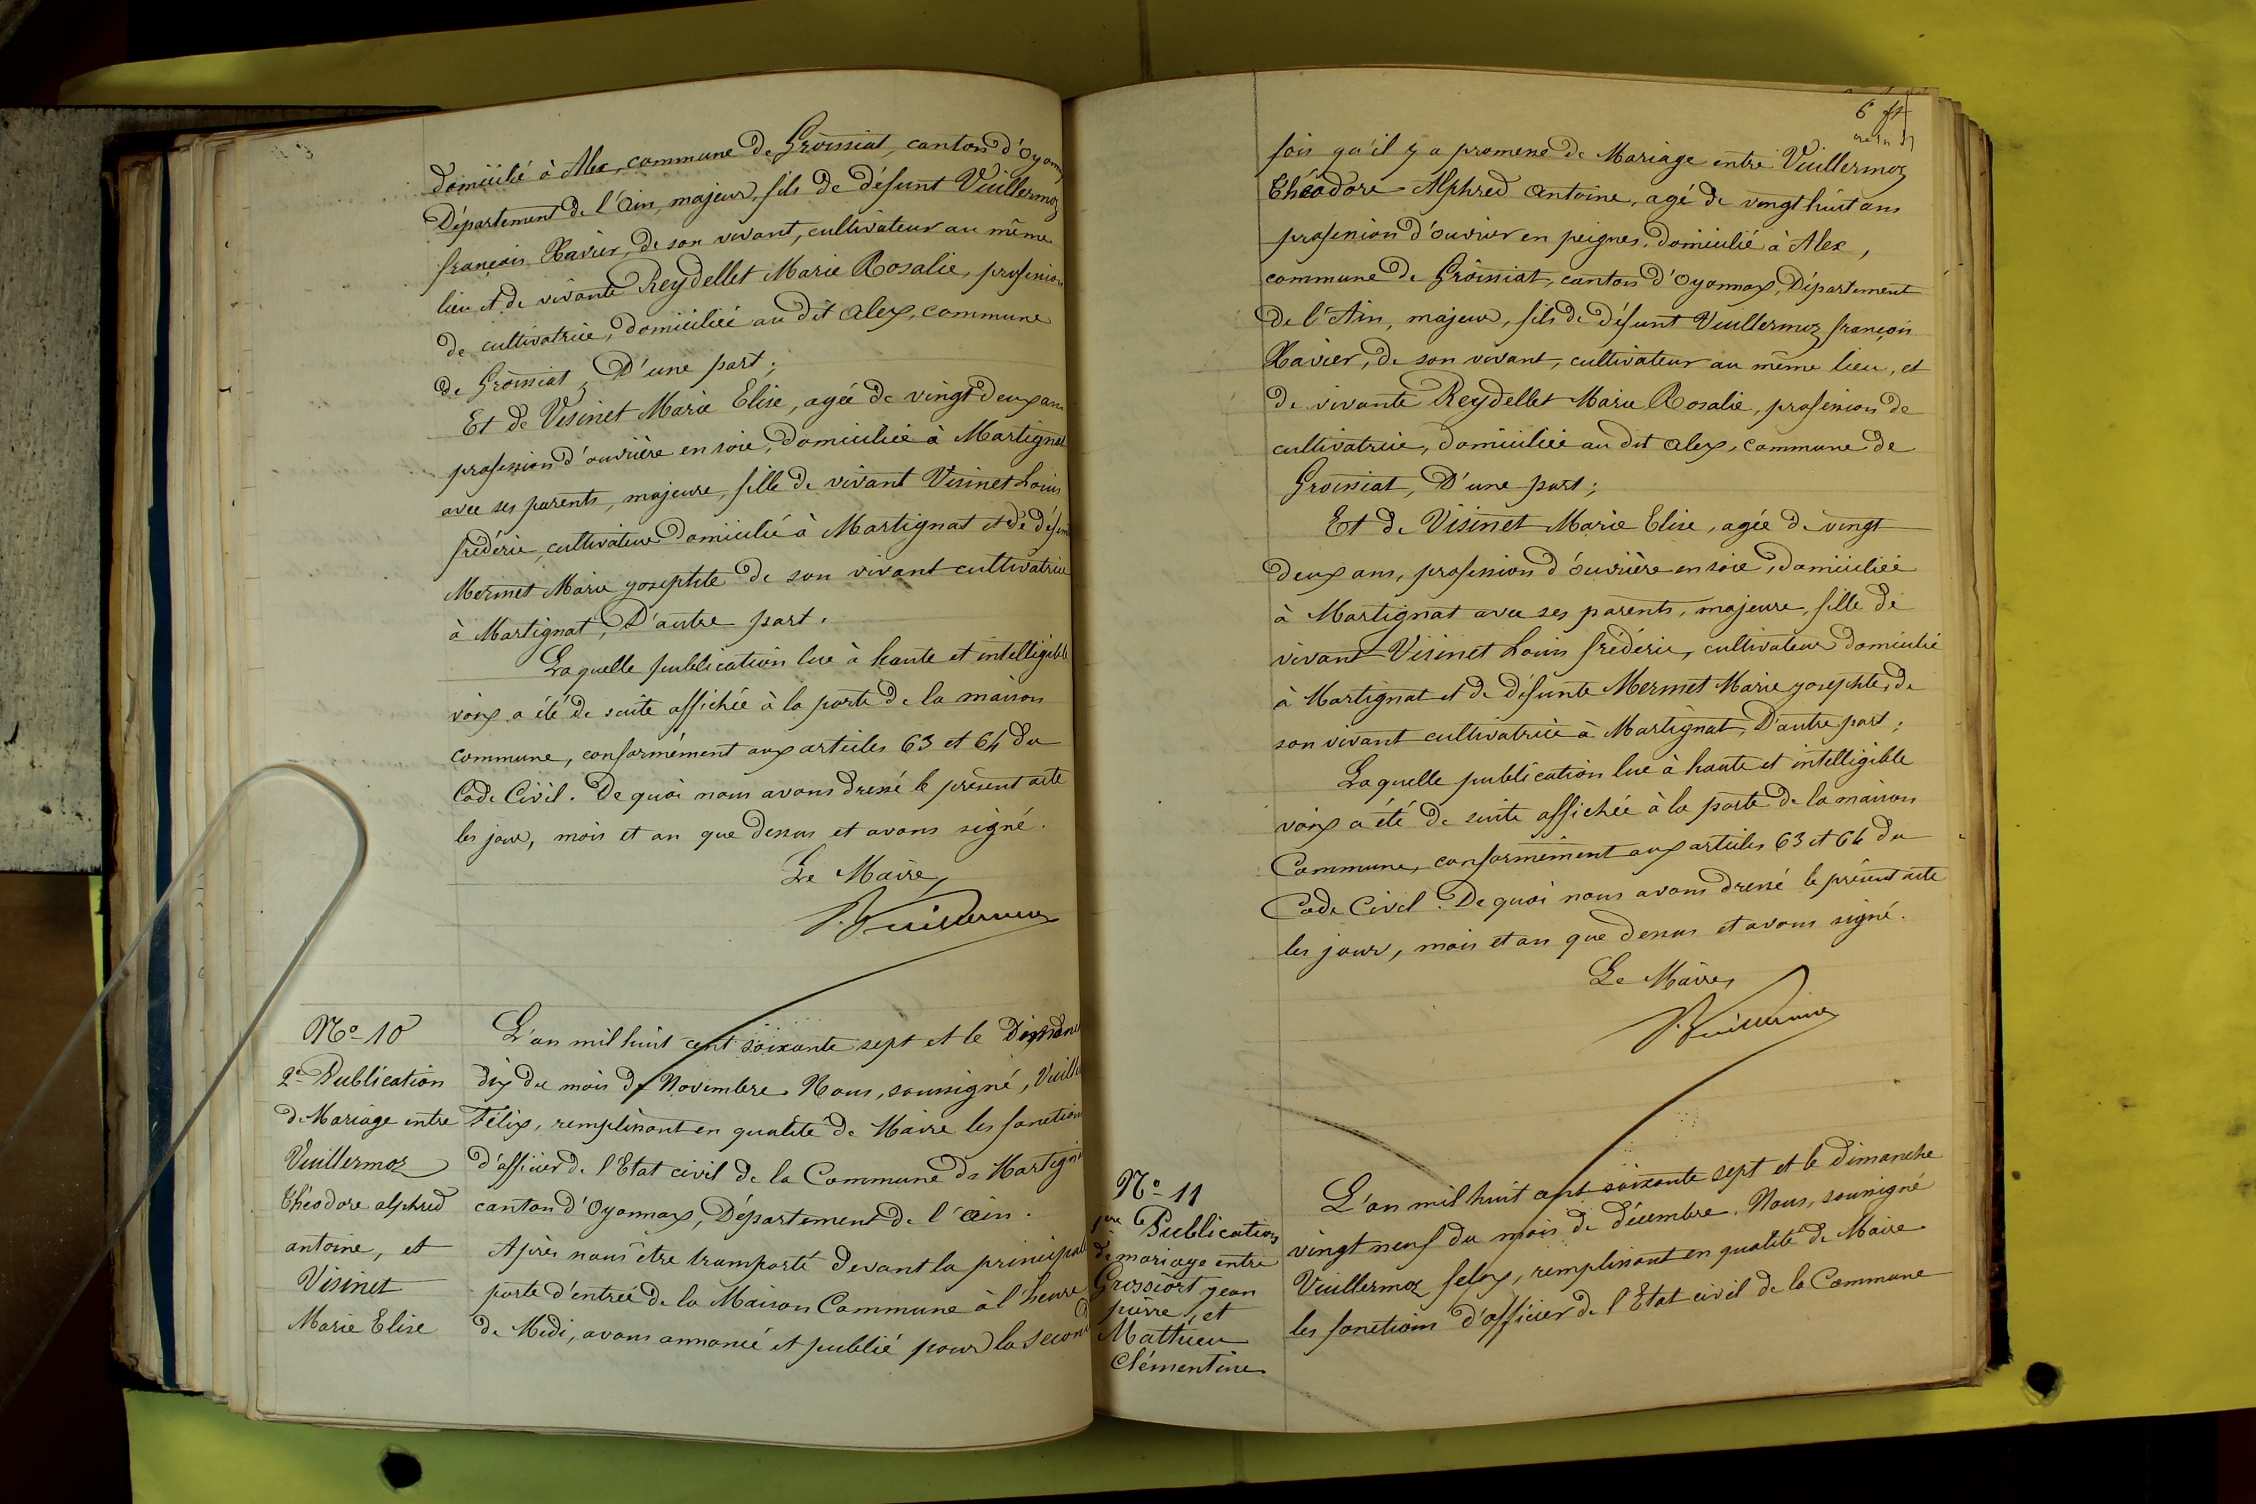 domicilié à Alex, commune de Groissiat, canton d'Oyonn
Département de l'Ain, majeur, fils de défunt Vuillermoz
françois Xavier, de son vivant, cultivateur au même
lieu et de vivante Reydellet Marie Rosalie, profession
de cultivatrice, domiciliée au dit Alex, commune
de Groissiat, D'une part;
Et de Visinet Marie Elise, agée de vingt deux ans
profession d'ouvrière en soie, domiciliée à Martignat
avec ses parents, majeure, fille de vivant Visinet Louis
frédéric, cultivateur domicilié à Martignat et de défun
Mermet Marie josephte de son vivant cultivatrice
à Martignat, D'autre part.
Laquelle publication lue à haute et intelligible
voix a été de suite affichée à la porte de la maison
commune, conformément aux articles 63 et 64 du
Code Civil. De quoi nous avons dressé le présent acte
les jour, mois et an que dessus et avons signé.
Le Maire,
Nº 10
2e Publication
de Mariage entre
Vuillermoz
théodore alphred
antoine, et
Visinet
Marie Elise
L'an mil huit cent soixante sept et le Dimanc
dix du mois de Novembre. Nous, soussigné, Vuille
Félix, remplissant en qualité de Maire les fonction
d'officier de l'Etat civil de la Commune de Martign
canton d'Oyonnax, Département de l'ain.
Après nous être transporté devant la principale
porte d'entrée de la Maison Commune à l'heure
de Midi, avons annoncé et publié pour la second
6
fois qu'il y a promesse de Mariage entre Vuillermoz
Théodore Alphred Antoine, agé de vingt huit ans
profession d'ouvrier en peignes, domicilié à Alex,
commune de Groissiat, canton d'Oyonnax, Département
de l'Ain, majeur, fils de défunt Vuillermoz françois
Xavier, de son vivant, cultivateur au même lieu, et
de vivante Reydellet Marie Rosalie, profession de
cultivatrice, domiciliée au dit alex, commune de
Groissiat, D'une part;
Et de Visinet Marie Elise, agée de vingt
deux ans, profession d'ouvrière en soie, domiciliée
à Martignat avec ses parents, majeure, fille de
vivant Visinet Louis frédéric, cultivateur domicilié
à Martignat et de défunte Mermet Marie josephte, de
son vivant cultivatrice à Martignat, D'autre part;
Laquelle publication lue à haute et intelligible
voix a été de suite affichée à la porte de la maison
Commune, conformément aux articles 63 et 64 du
Code Civil. De quoi nous avons dressé le présent acte
les jour, mois et an que dessus et avons signé.
Le Maire,
Nº 11
1ere Publication
de mariage entre
Grossiort jean
pierre, et
Mathieu
Clémentine
L'an mil huit cent soixante sept et le dimanche
vingt neuf du mois de décembre. Nous, soussigné
Vuillermoz felix, remplissant en qualité de Maire
les fonctions d'officier de l'Etat civil de la Commune